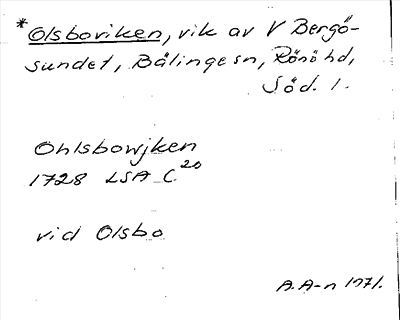 *Olsboviken, vik av V Bergö-
sundet, Bälinge sn, Rönö hd,
Söd. l.
Ohlsbowjken
1728 LSA C 20
vid Olsbo
A.A-n 1971.